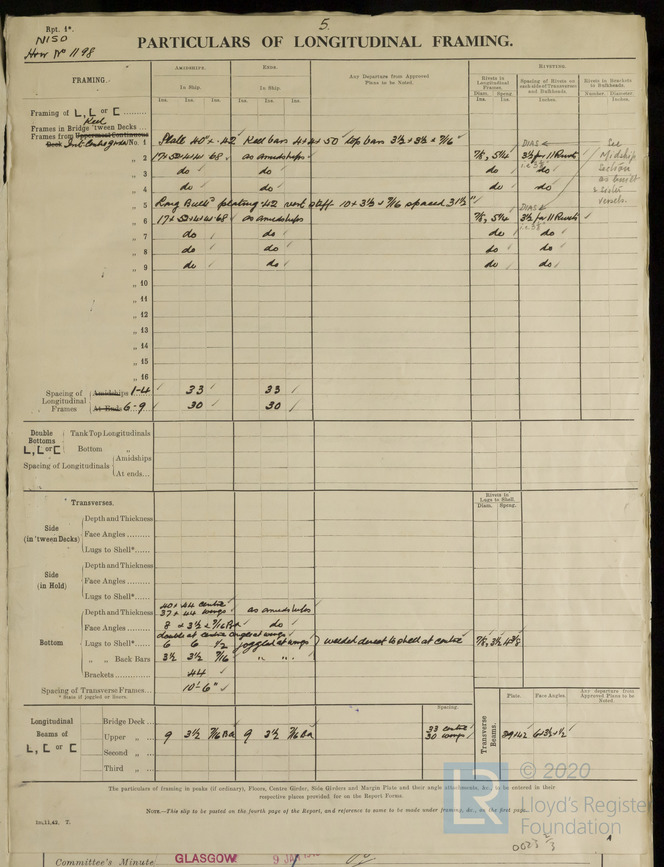 5.
Rpt. 1*.
N150
How No 1198
PARTICULARS OF LONGITUDINAL FRAMING.
FRAMING.
AMIDSHIPS.
ENDS.
Any Departure from Approved Plans to be Noted.
RIVETING.
In Ship.
In Ship.
Rivets in Longitudinal Frames.
Spacing of Rivets on each side of Transverses and Bulkheads.
Rivets in Brackets to Bulkheads.
Ins. Ins. Ins. Ins. Ins. Ins.
Diam. Ins. Spcng. Ins.
Inches.
Number. Diameter. Inches.
Framing of L, L or C
Keel
Frames in Bridge 'tween Decks
Frames from Uppermost Continuous
Deck No. 1 Plate 40" x .42 Keel bars 4 x 4 x 50 top bars 3½ x 3½ x 7/16
DIAS
See Midship section as built & sister vessels.
„ 2 as amidships 7/8, 5¼ 3½ for 11 Rivets
„ 3 do do do do
„ 4 do do do do
„ 5 Long Bulk'd plating .42 vert stiff 10 x 3½ x 7/16 spaced 31½"
DIAS
„ 6 as amidships 7/8, 5¼ 3½ for 11 Rivets
„ 7 do do do do
„ 8 do do do do
„ 9 do do do do
„ 10
„ 11
„ 12
„ 13
„ 14
„ 15
„ 16
Spacing of Longitudinal Frames
Amidships 1-4 33 33
At Ends 6-9 30 30
Double Bottoms L, L or C
Tank Top Longitudinals
Bottom „
Spacing of Longitudinals
Amidships
At ends...
Transverses.
Rivets in Lugs to Shell.
Diam. Spcng.
Side (in 'tween Decks)
Depth and Thickness
Face Angles
Lugs to Shell*
Side (in Hold)
Depth and Thickness
Face Angles
Lugs to Shell*
Bottom
40 x .44 centre
Depth and Thickness 37 x .44 wings as amidships
Face Angles 8 x 3½ x 7/16 do
double at centre angles at wings
Lugs to Shell* 6 6 ½ joggled at wings welded direct to shell at centre 7/8, 3½
„ „ Back Bars 3½ 3½ 7/16 „ „ „
Brackets .44
Spacing of Transverse Frames 10'-6"
* State if joggled or liners.
Longitudinal Beams of L, L or C
Spacing.
Transverse Beams.
Plate. Face Angles.
Any departure from Approved Plans to be Noted.
Bridge Deck
Upper „ 9 3½ 7/16 9 3½ 7/16 33 centre 30 wings 6 x 3½ x ½
Second „
Third „
The particulars of framing in peaks (if ordinary), Floors, Centre Girder, Side Girders and Margin Plate and their angle attachments, &c., to be entered in their
respective places provided, for on the Report Forms.
NOTE.—This slip to be posted on the fourth page of the Report, and reference to same to be made under framing, &c., on the first page.
1m,11,42. T.
© 2020
LR
Lloyd's Register
Foundation
Committee's Minute GLASGOW 9 JAN